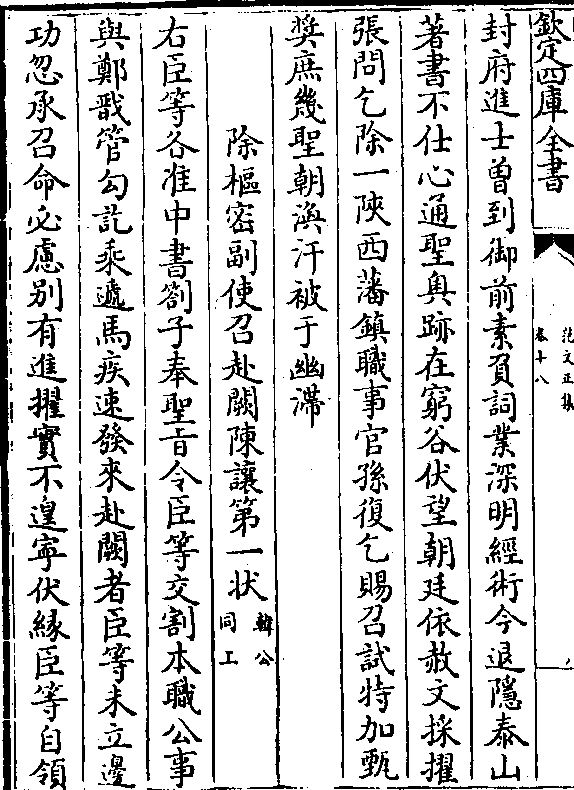 欽定四庫全書
范文正集
卷十八
封府進士曽到御前素負詞業深明經術今退隠泰山
著書不仕心通聖奥跡在窮谷伏望朝廷依赦文採擢
張問乞除一陜西藩鎮職事官孫復乞賜召試特加甄
奨庶幾聖朝渙汗被于幽滯
除樞密副使召赴闕陳讓第一状韓公同上
右臣等各准中書劄子奉聖旨令臣等交割本職公事
與鄭戩管勾訖乘遞馬疾速發來赴闕者臣等未立邊
功忽承召命必慮别有進擢實不遑寧伏縁臣等自領